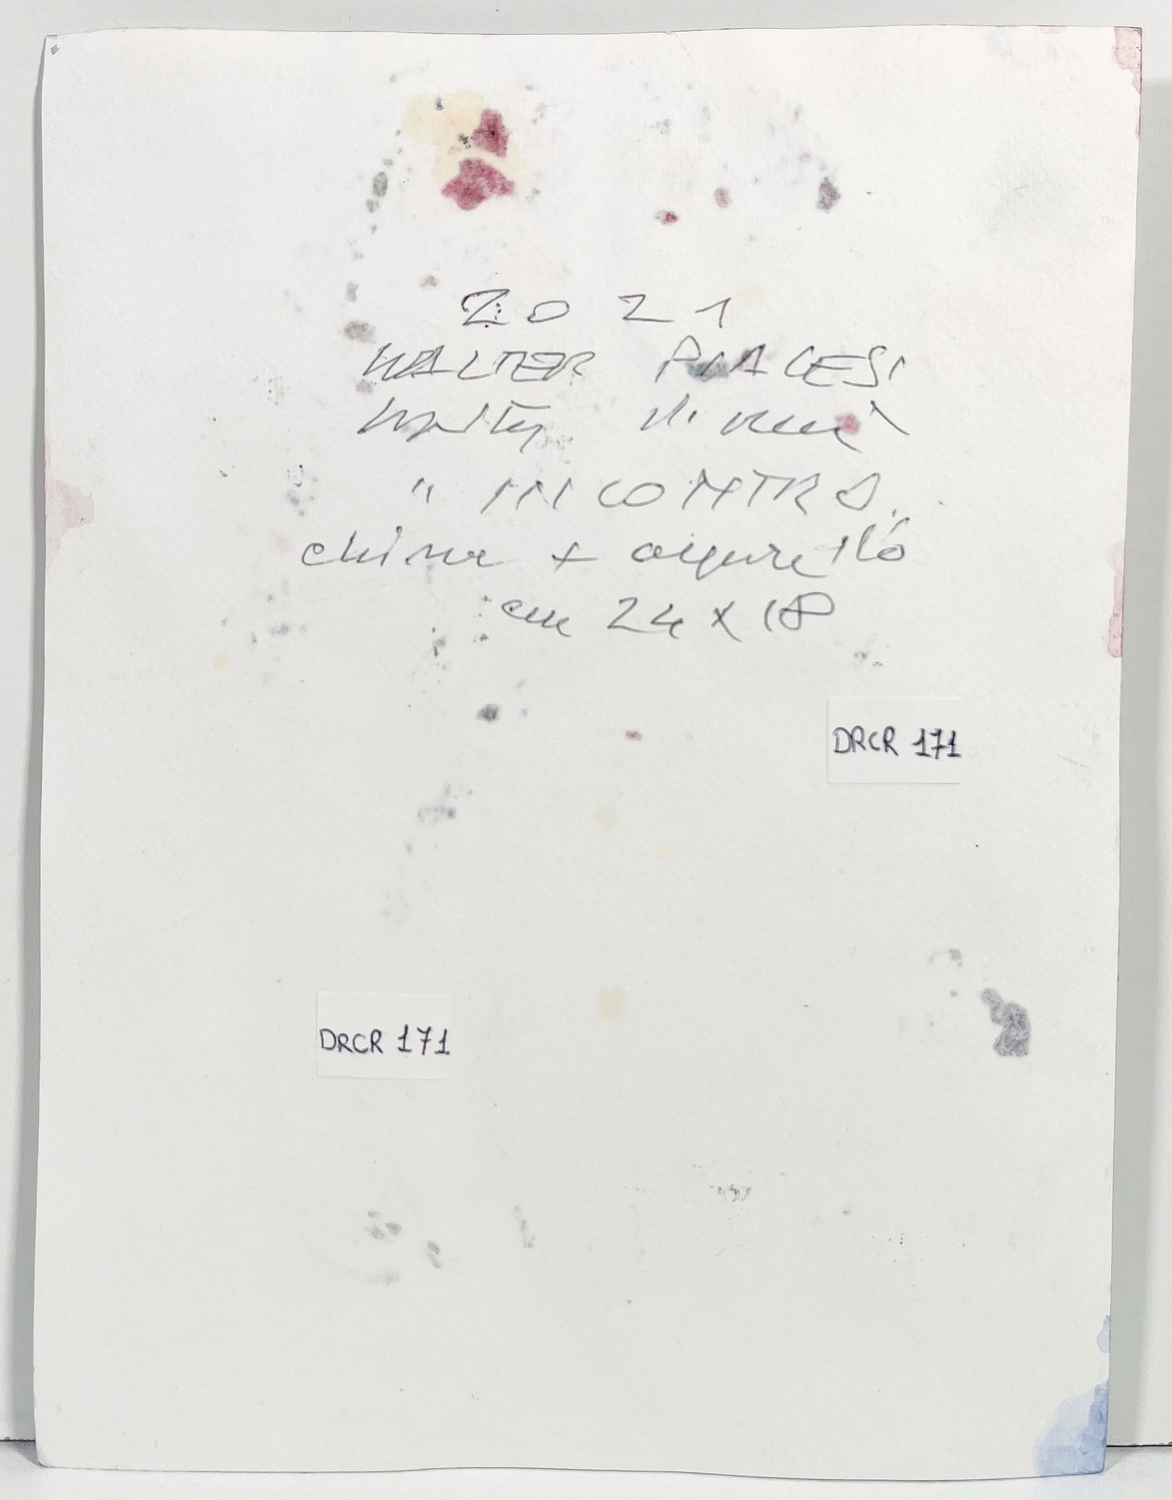 2021
WALTER PIACESI
"INCONTRO"
china + acquerello
cm 24 x 18
DRCR 171
DRCR 171